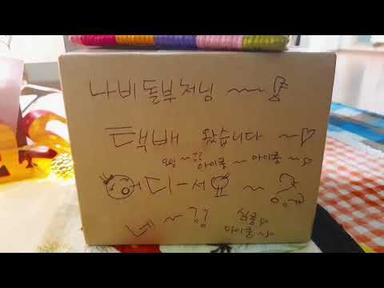 나비돌부처님 ~~
택배 왔습니다 ~♡
아이쿵 ~ 아이쿵 ~
어디-서요 ~
네 ~
심쿵
아이쿵 ~